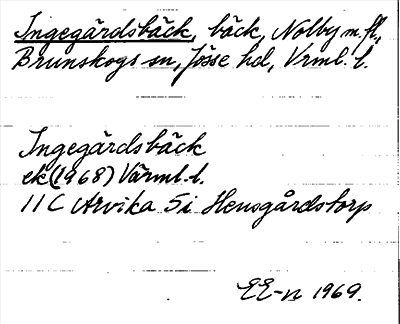 Ingegärdsbäck, bäck, Nolby m.fl.,
Brunskogs sn, Jösse hd, Vrml. l.
Ingegärdsbäck
ek (1968) Värml. l.
11C Arvika 5i Hensgårdstorp
EE-n 1969.